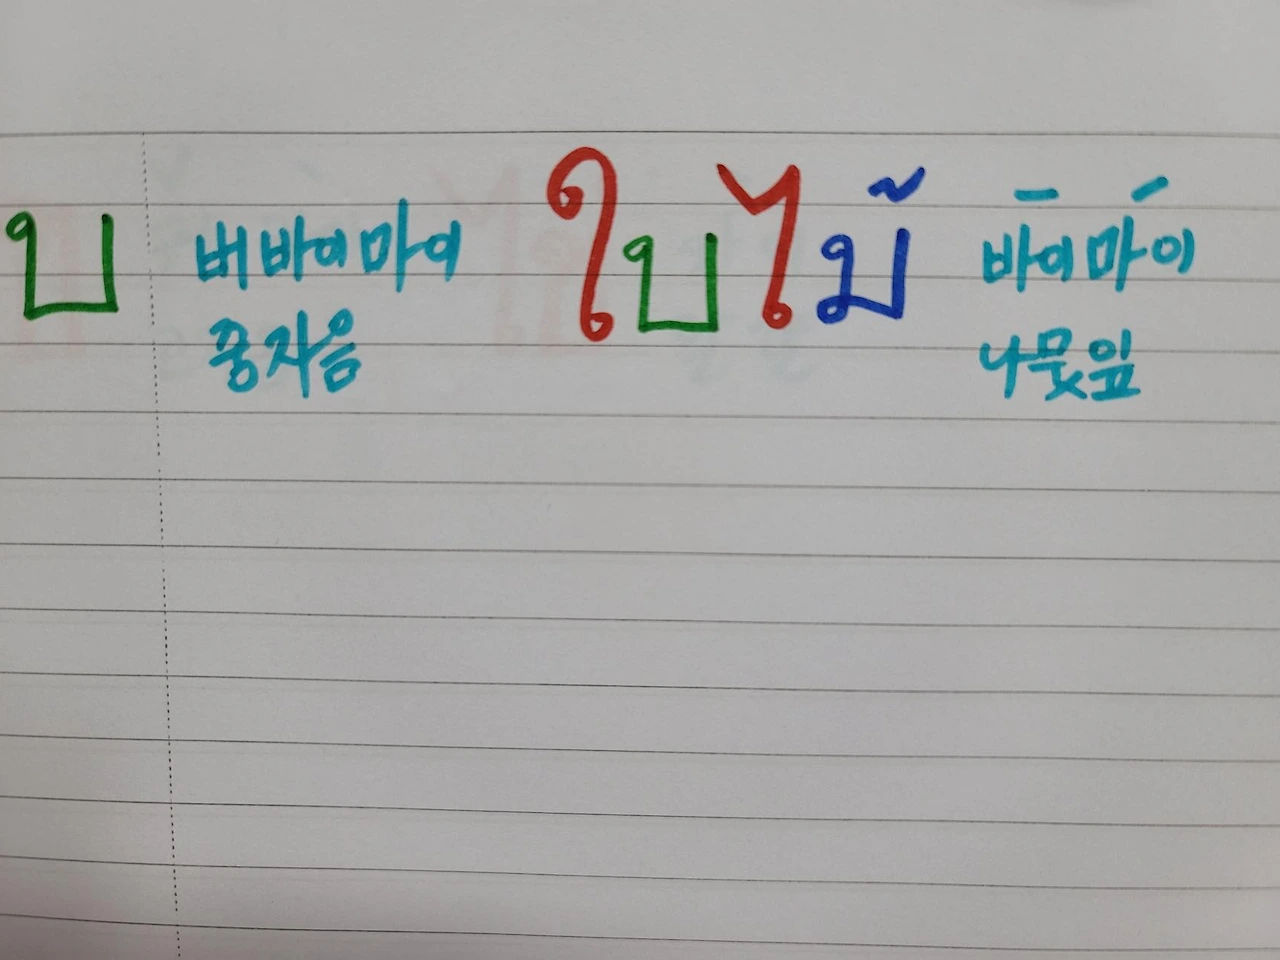 บ 버 바이마이 ใบไม้ 바이마이
중자음 나뭇잎